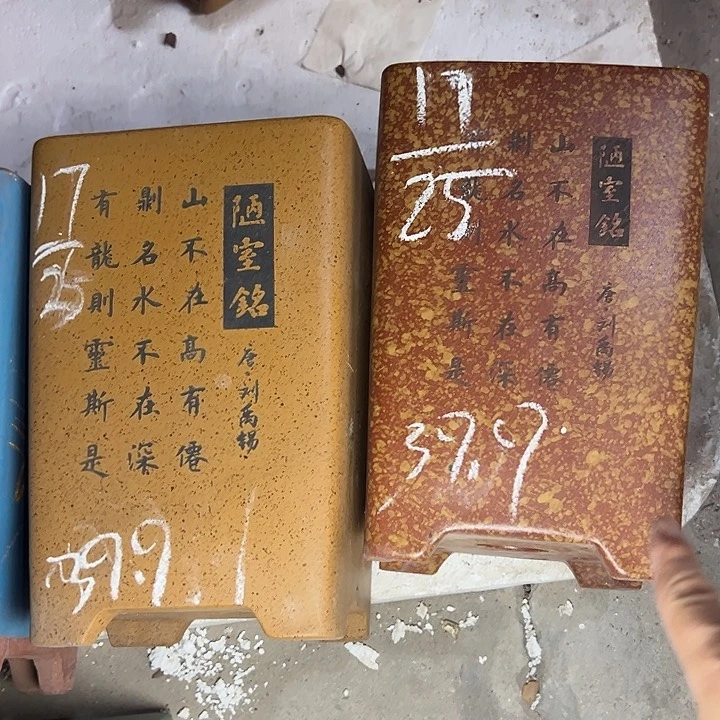 17
25
陋室銘
唐·刘禹锡
山不在高有僊
則名水不在深
有龍則靈斯是
39.9
17
25
陋室銘
唐·刘禹锡
山不在高有僊
則名水不在深
有龍則靈斯是
39.9